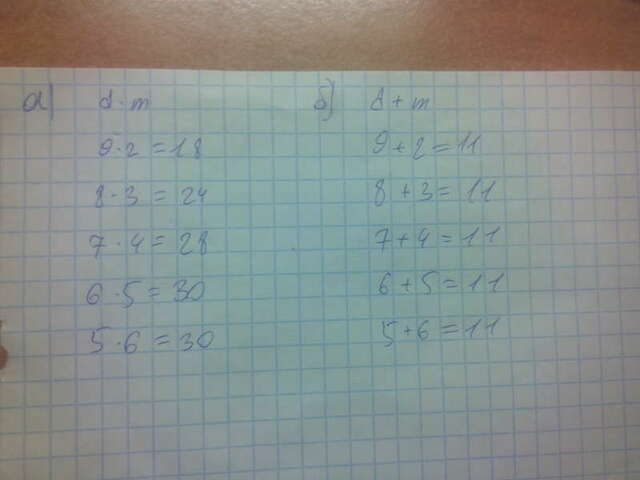 а) d · m
9 · 2 = 18
8 · 3 = 24
7 · 4 = 28
6 · 5 = 30
5 · 6 = 30
б) d + m
9 + 2 = 11
8 + 3 = 11
7 + 4 = 11
6 + 5 = 11
5 + 6 = 11